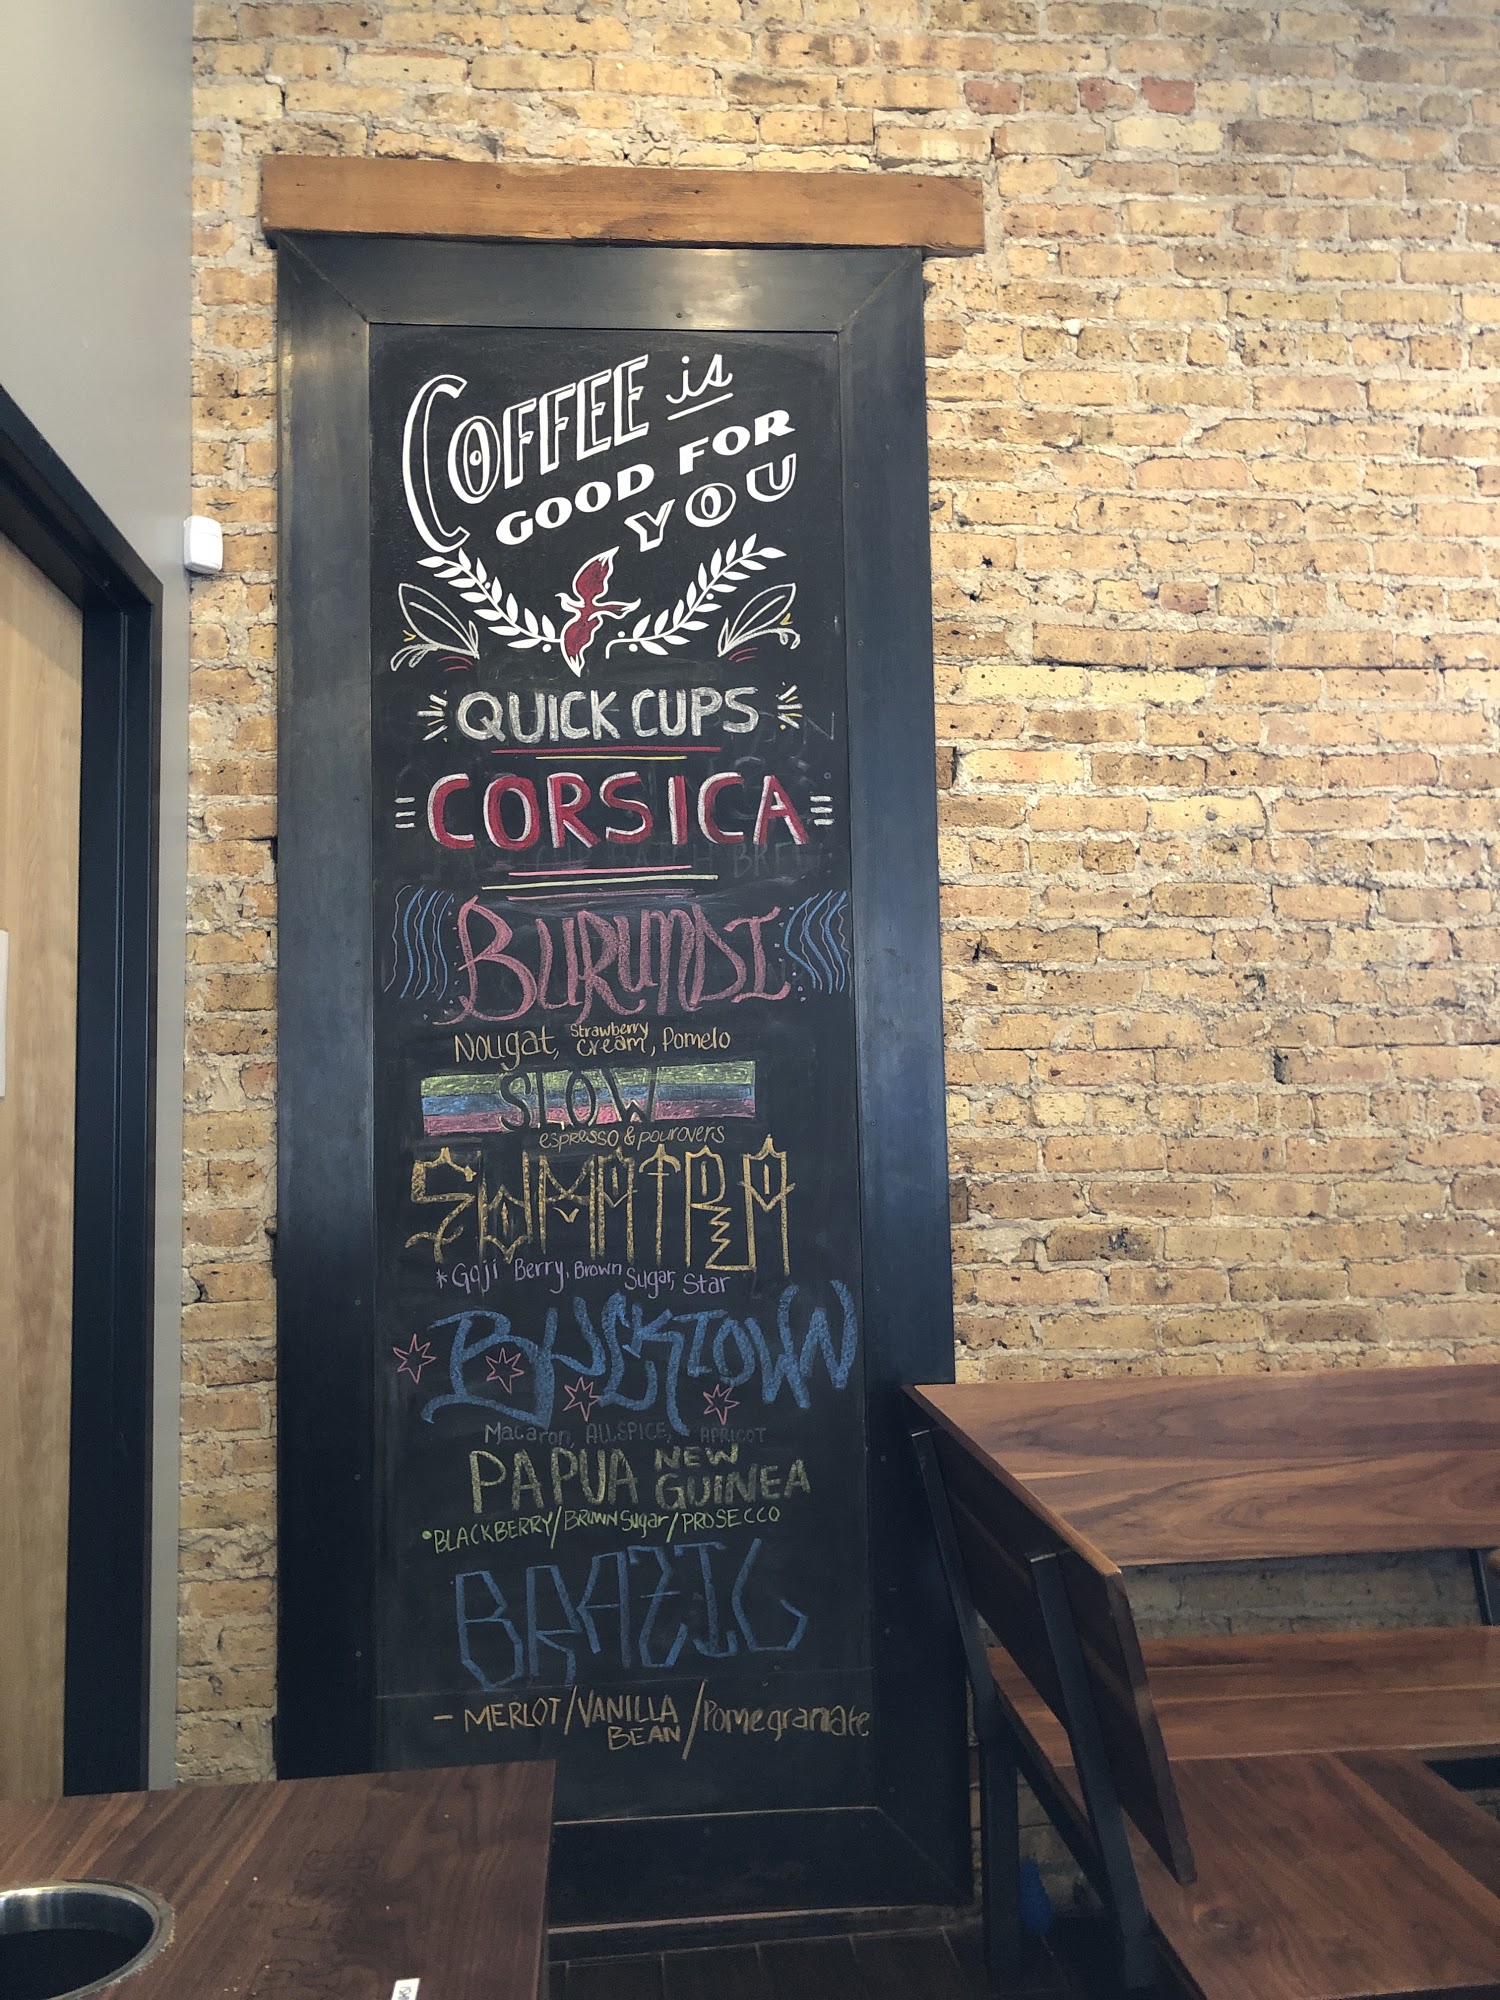 COFFEE is
GOOD FOR
YOU
QUICK CUPS
CORSICA
BURUNDI
Nougat, Strawberry Cream, Pomelo
SLOW
espresso & pourovers
SUMATRA
*Goji Berry, Brown Sugar, Star
BUCKTOWN
Macaron, ALLSPICE, APRICOT
PAPUA NEW GUINEA
•BLACKBERRY/BROWN Sugar/PROSECCO
BRAZIL
- MERLOT/VANILLA BEAN/Pomegranate